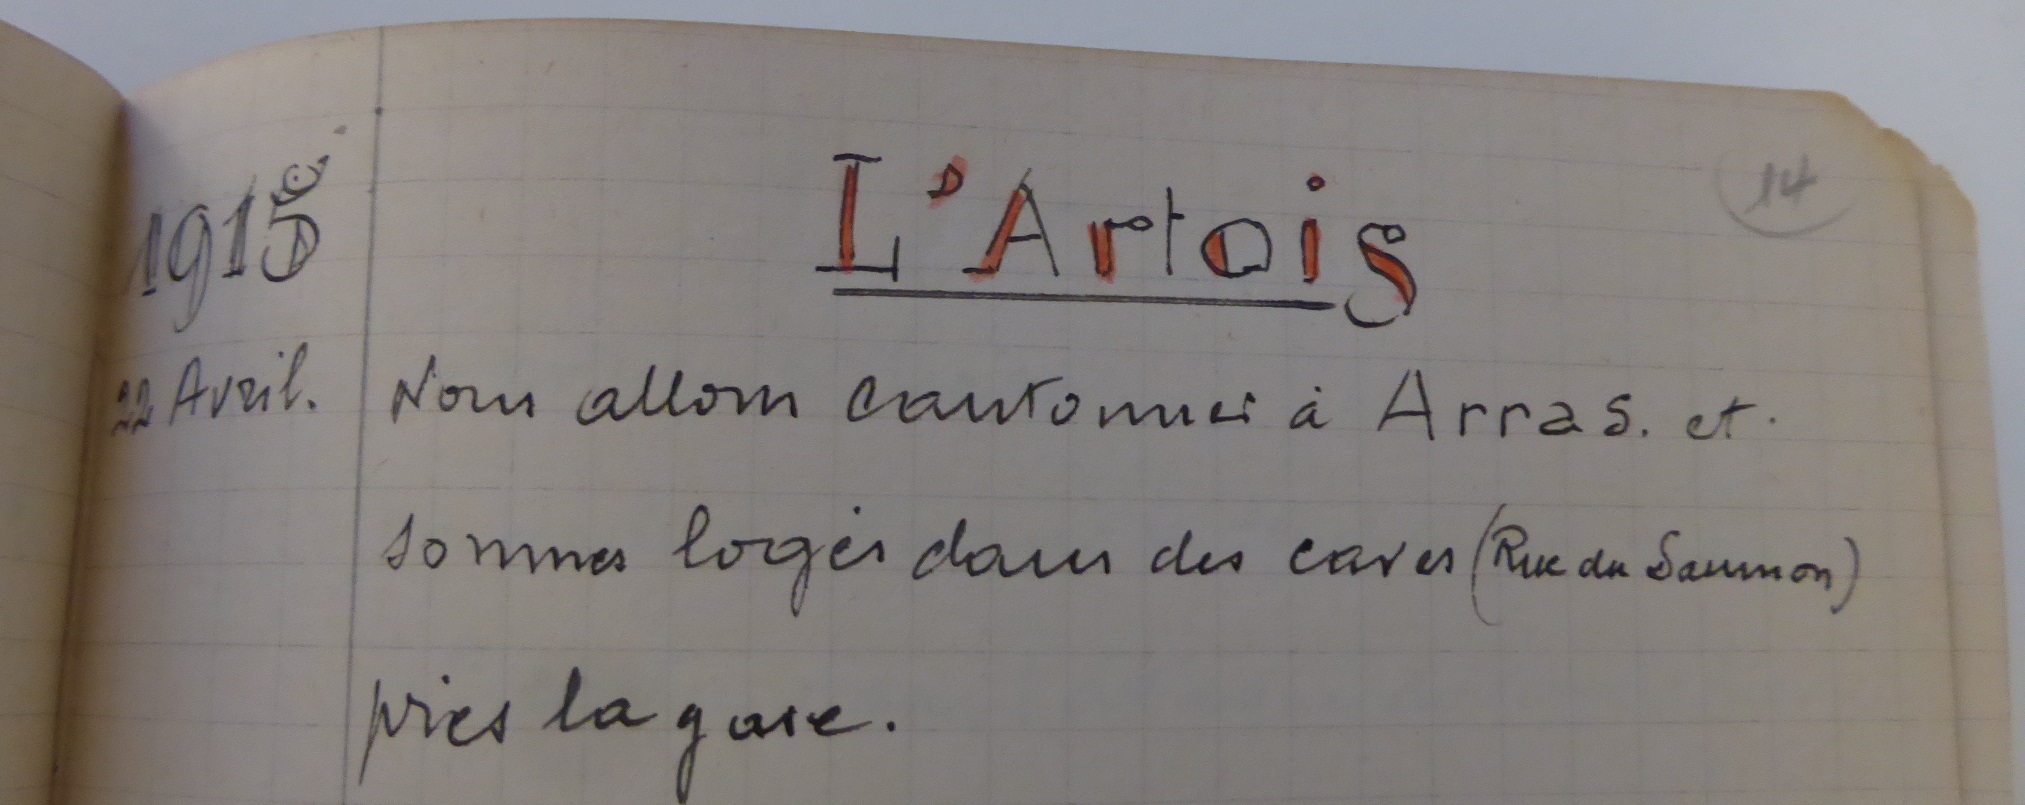 14
1915
L'Artois
22 Avril. Nous allons cantonner à Arras. et.
sommes logés dans des caves (Rue du Saumon)
près la gare.